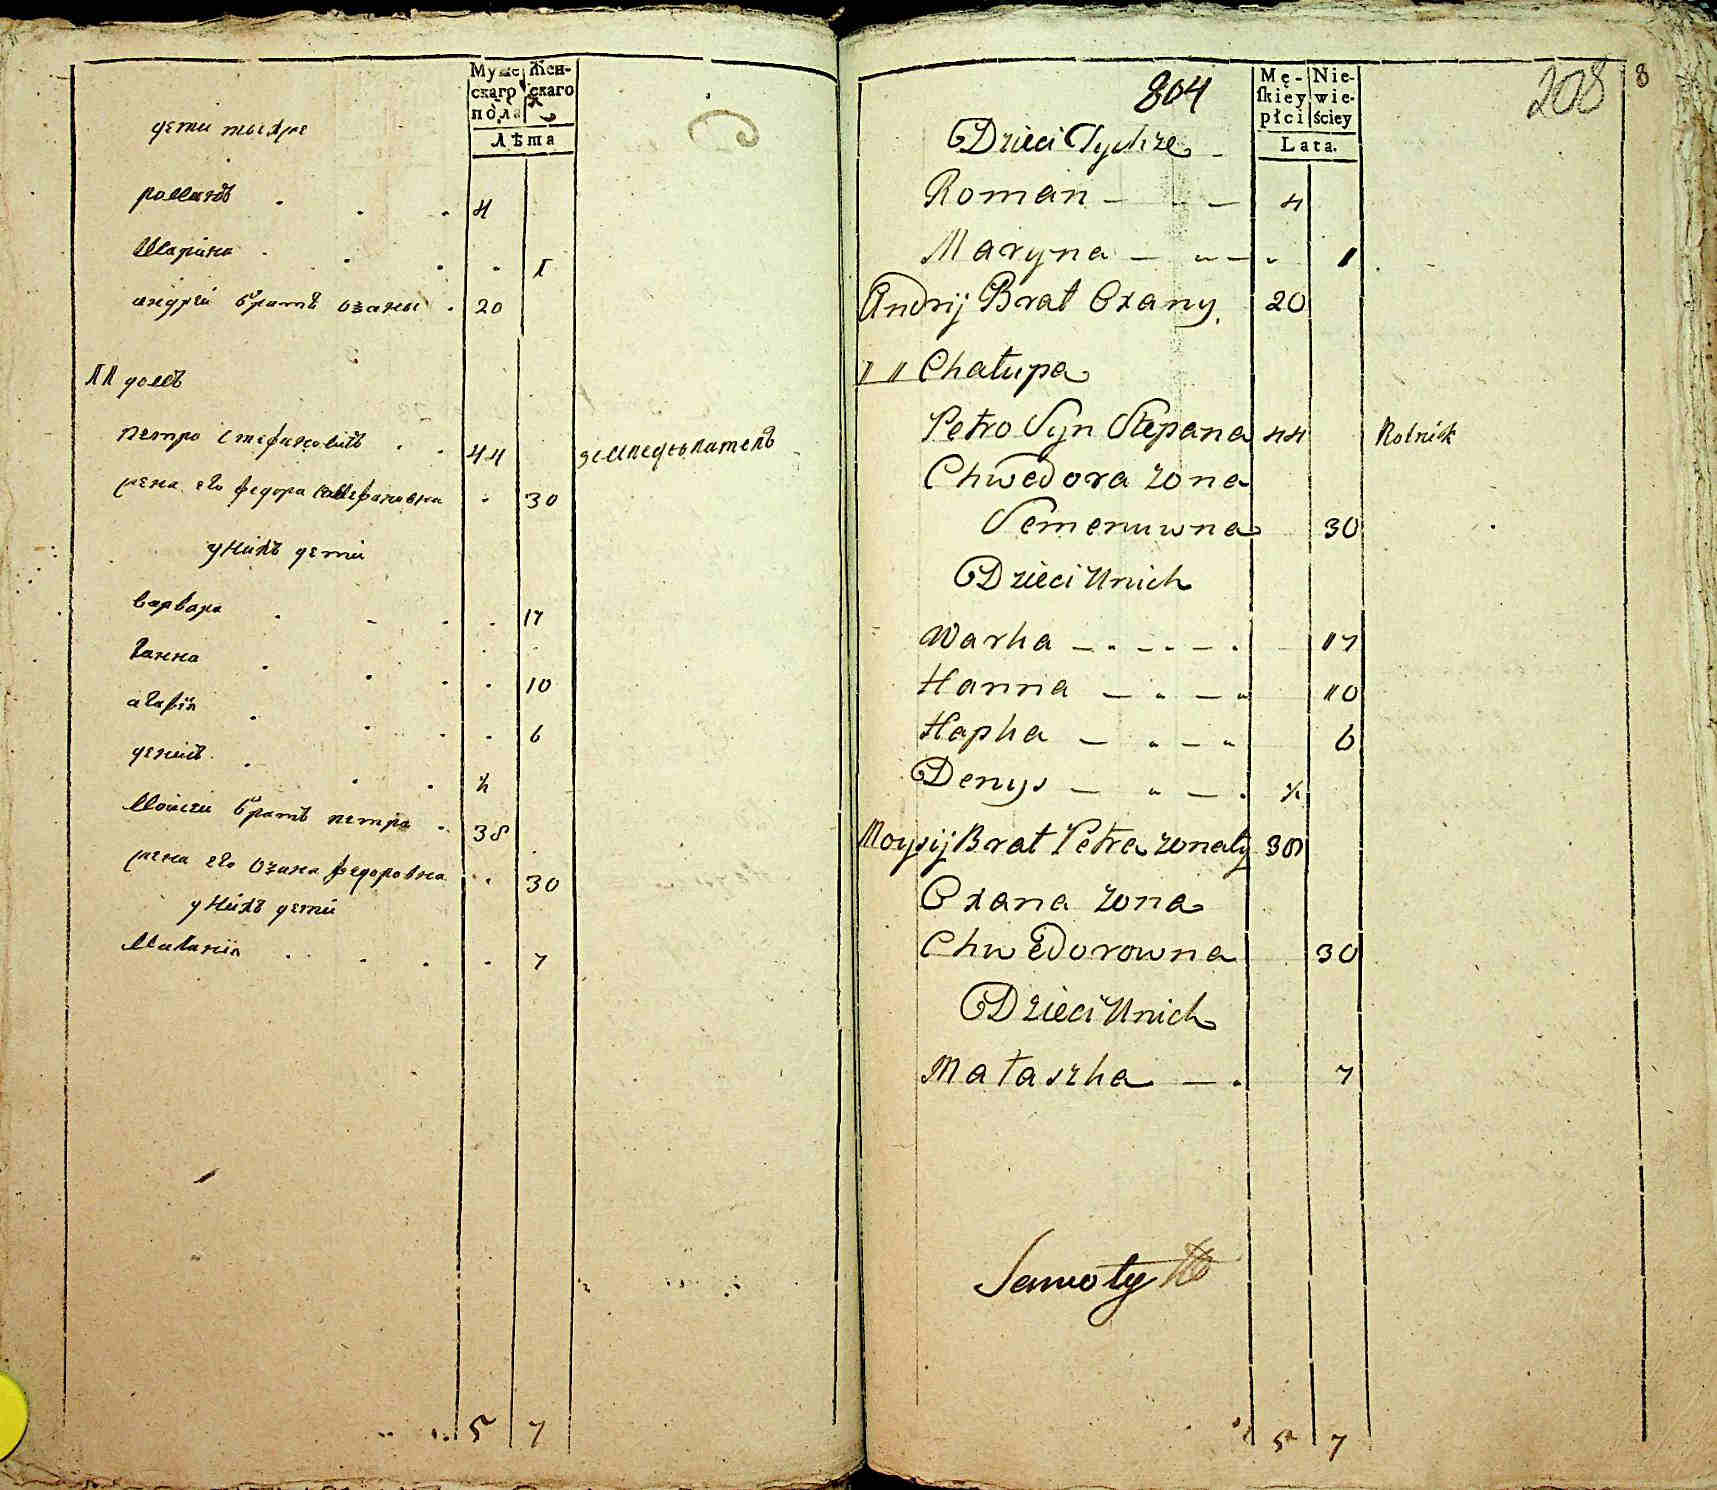 Муже
скаго
пола
Жен-
скаго
Лѣта
дети тыхже
романъ 4
Марина 1
андрей братъ Оѯаны 20
11 домъ
петро Стефановичъ 44 земледѣлатель
жена его федора
30
у нихъ дети
варвара 17
ганна 10
агафія 6
денисъ ½
Моисей братъ петра 38
жена его Оѯана федоровна 30
у нихъ дети
Маланія 7
5 7
804
208
8
Mę-
skiey
płci
Nie-
wie-
ściey
Lata.
Dzieci Tychże
Roman 4
Maryna 1
Andrij Brat Oxany 20
11 Chałupa
Petro Syn Stepana 44 Rolnik
Chwedora żona
Semenuwna 30
Dzieci Unich
Warka 17
Hanna 10
Hapka 6
Denys ½
Moysij Brat Petra żonaty 38
Oxana żona
Chwedorowna 30
Dzieci Unich
Małaszka 7
5 7